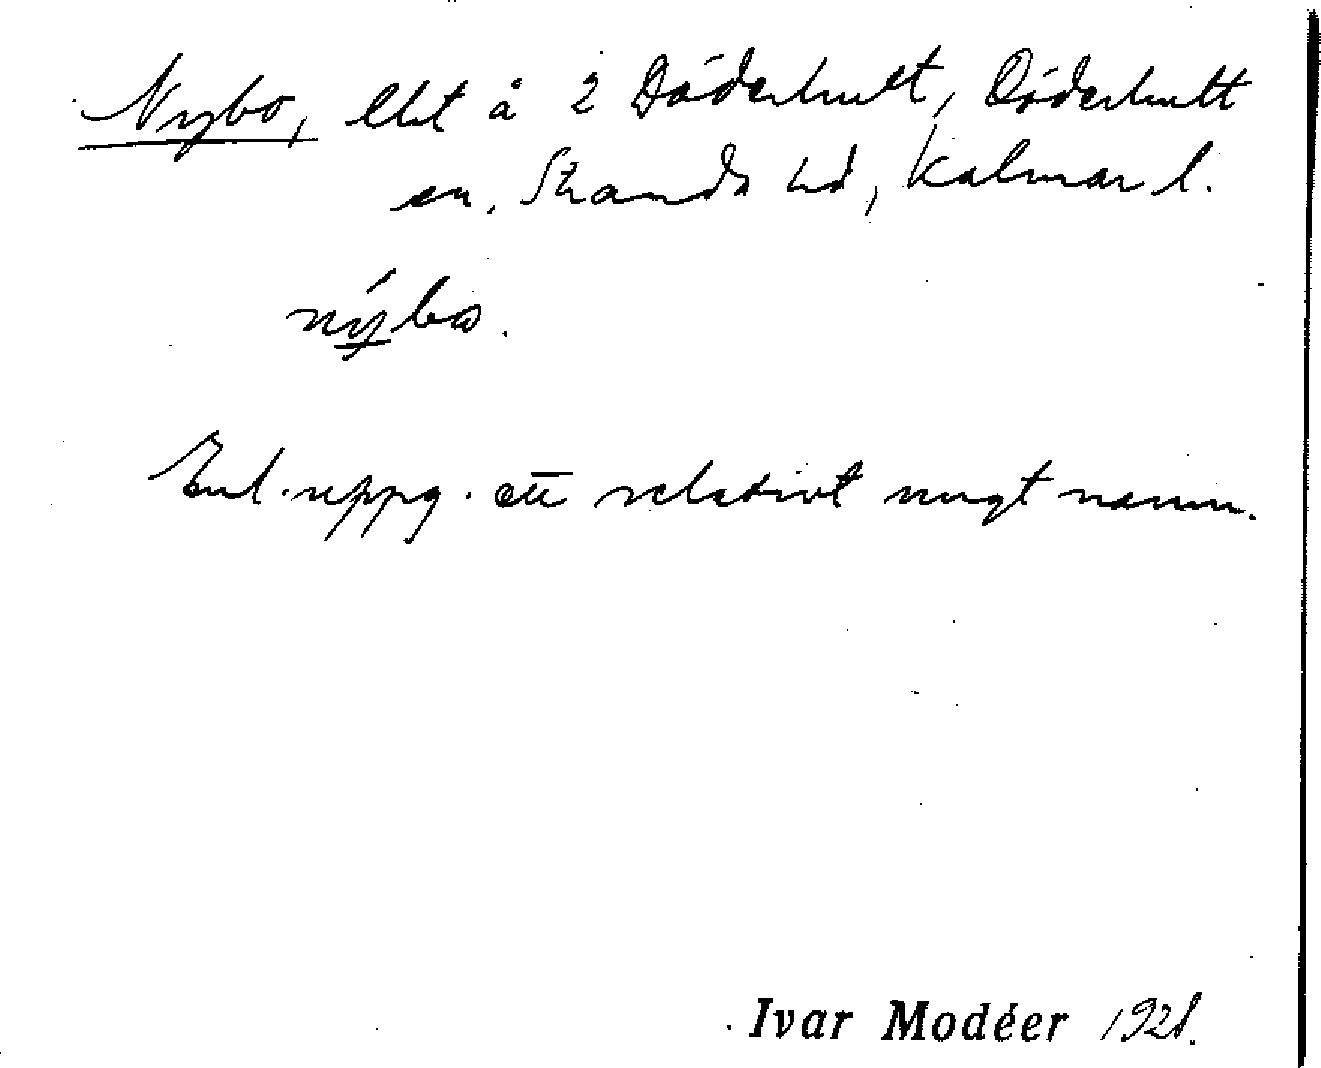 Nybo, lht å 2 Döderhult, Döderhult
sn, Stranda hd, Kalmar l.
nýbω.
Enl. uppg. ett relativt nugt namn.
Ivar Modéer 1921.